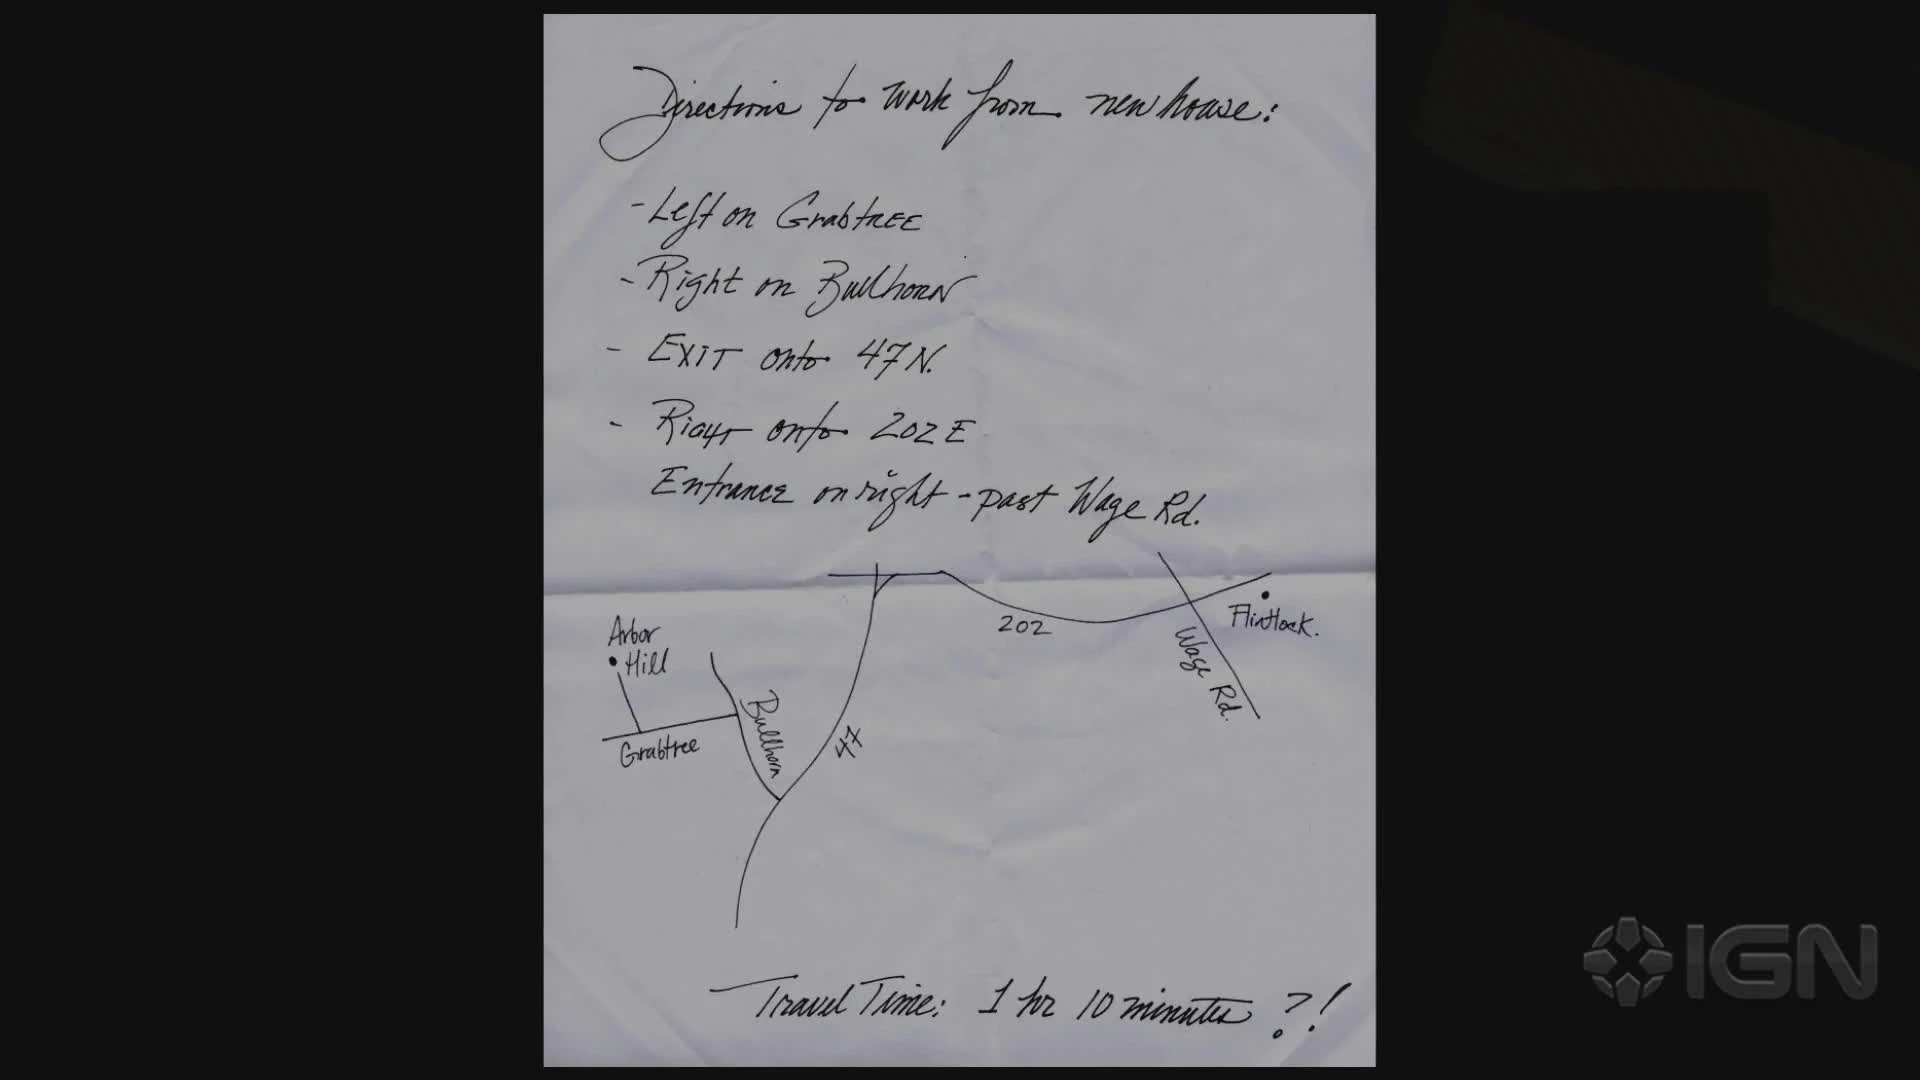 Directions to work from new house:
- Left on Grabtree
- Right on Bullhorn
- Exit onto 47 N.
- Right onto 202 E
Entrance on right - past Wage Rd.
Arbor
Hill
Grabtree
Bullhorn
47
202
Wage Rd.
Flintlock.
Travel Time: 1 hr 10 minutes ?!
IGN